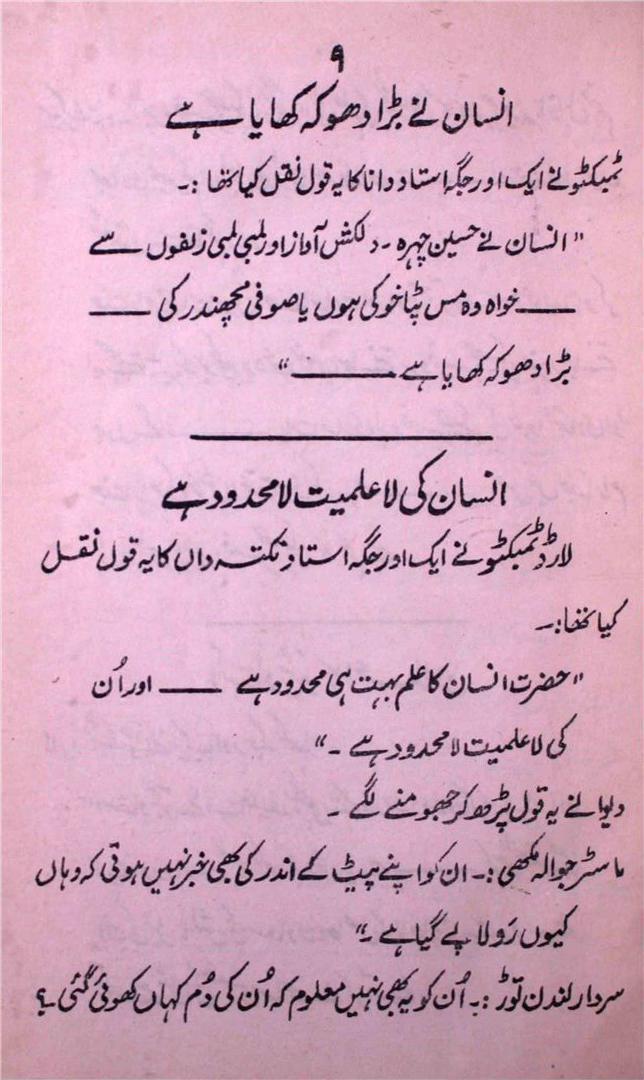 ۹
انسان نے بڑا دھوکہ کھایا ہے
ٹمبکٹو نے ایک اور جگہ استاد دانا کا یہ قول نقل کیا تھا :۔
"انسان نے حسین چہرہ ۔ دلکش آواز اور لمبی لمبی زلفوں سے
—— خواہ وہ مس پٹاخو کی ہوں یا صوفی مچھندر کی ——
بڑا دھوکہ کھایا ہے ———"
انسان کی لاعلمیت لامحدود ہے
لارڈ ٹمبکٹو نے ایک اور جگہ استاد نکتہ داں کا یہ قول نقل
کیا تھا:۔
"حضرت انسان کا علم بہت ہی محدود ہے —— اور اُن
کی لاعلمیت لامحدود ہے ۔"
دیوانے یہ قول پڑھ کر جھومنے لگے ۔
ماسٹر جوالہ مکھی :۔ ان کو اپنے پیٹ کے اندر کی بھی خبر نہیں ہوتی کہ وہاں
کیوں رَولا پے گیا ہے ۔"
سردار لندن توڑ :۔ اُن کو یہ بھی نہیں معلوم کہ اُن کی دُم کہاں کھوئی گئی ۔؟